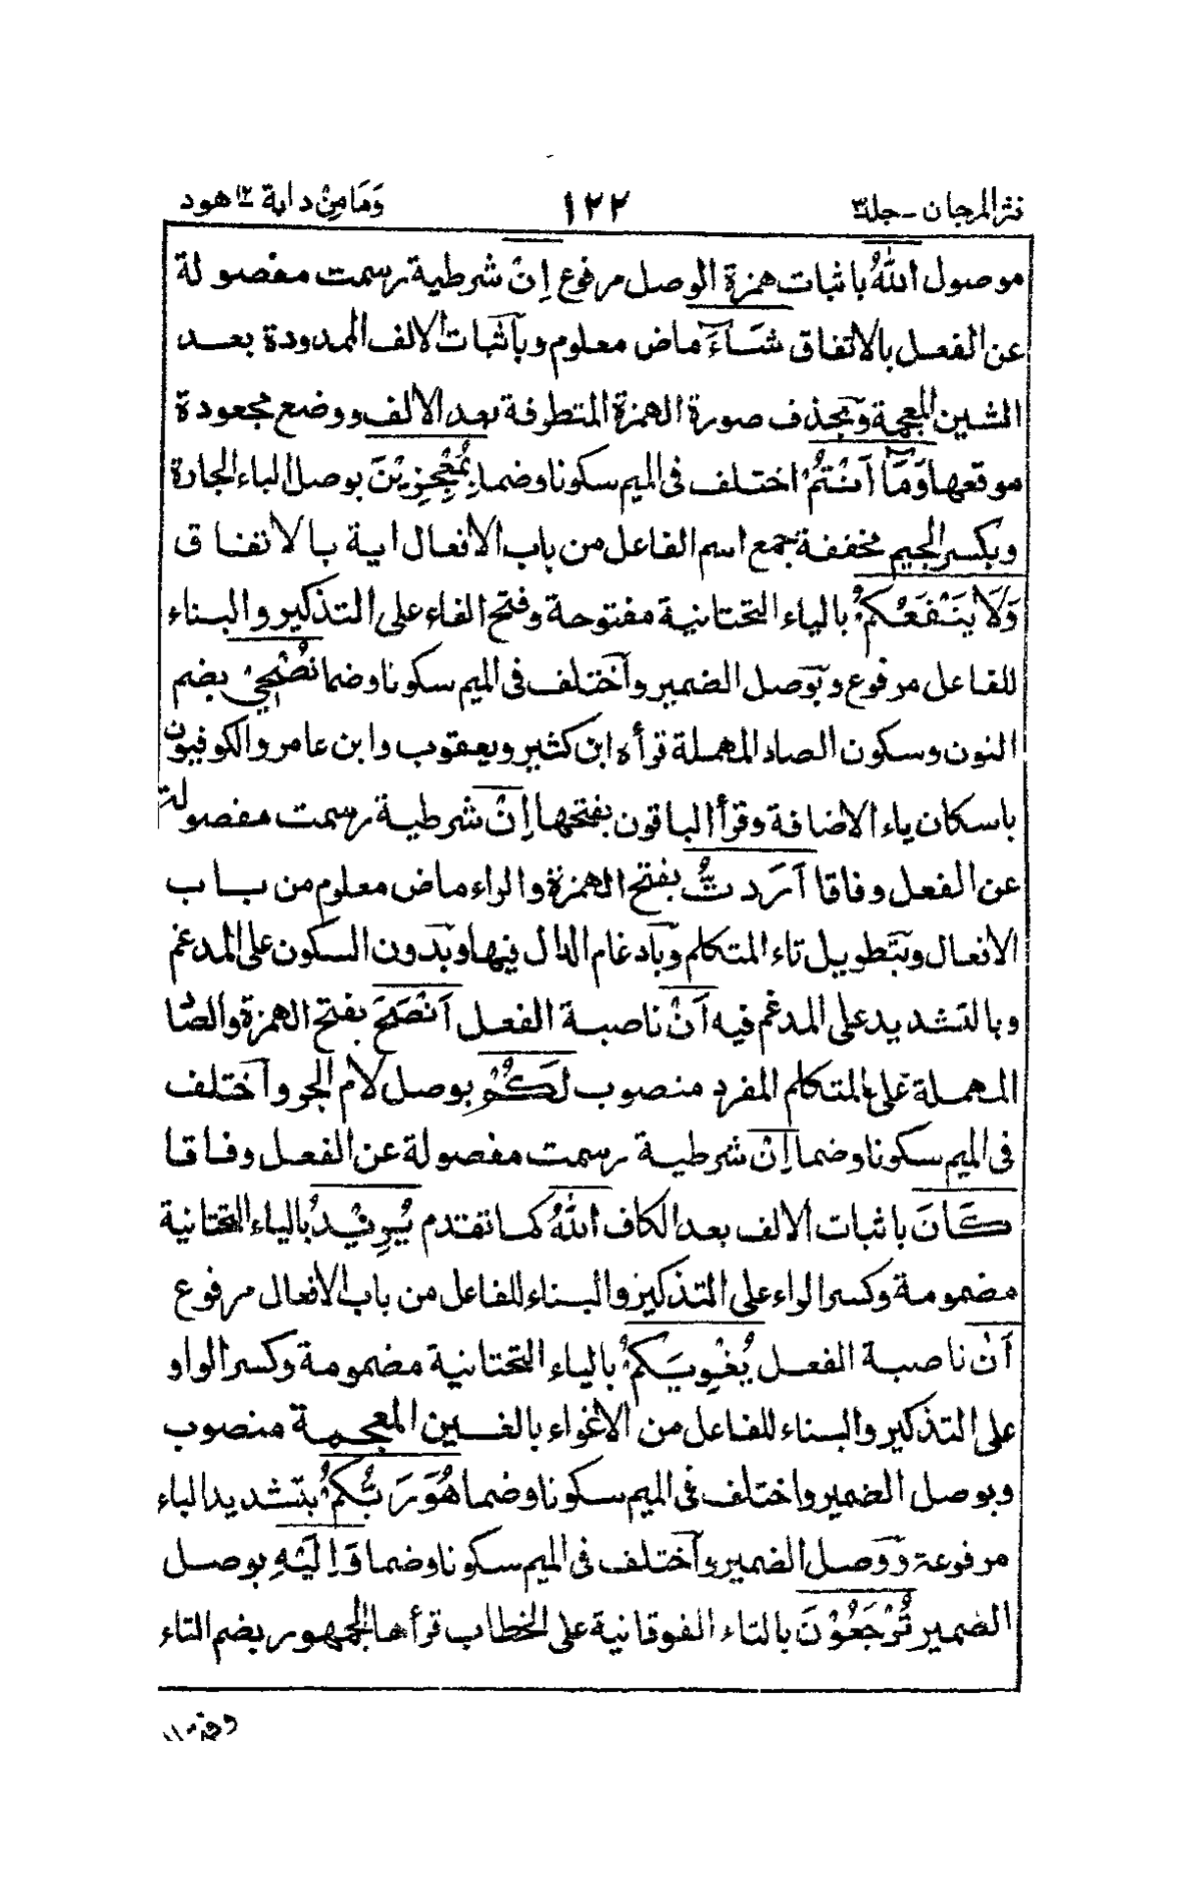 نثر المرجان - جلد ٣ ١٢٢ وَمَا مِنْ دابة ١٢ هود
موصول اللّٰهُ باثبات همزة الوصل مرفوع اِنْ شرطية رسمت مفصولة
عن الفعل بالاتفاق شَآءَ ماض معلوم وبآثبات الالف الممدودة بعد
الشين المعجمة وبحذف صورة الهمزة المتطرفة بعد الالف ووضع مجعودة
موقعها وَمَآ اَنْتُمْ اختلف فى الميم سكونا وضما بِمُعْجِزِيْنَ بوصل الباء الجارة
وبكسر الجيم مخففة جمع اسم الفاعل من باب الافعال اية بالاتفاق
وَلَا يَنْفَعُكُمْ بالياء التحتانية مفتوحة وفتح الفاء على التذكير والبناء
للفاعل مرفوع وبوصل الضمير وآختلف فى الميم سكونا وضما نُصْحِيْ بضم
النون وسكون الصاد المهملة قرأه ابن كثير ويعقوب وابن عامر والكوفيون
باسكان ياء الاضافة وقرأ الباقون بفتحها اِنْ شرطية رسمت مفصولة
عن الفعل وفاقا اَرَدْتُّ بفتح الهمزة والراء ماض معلوم من باب
الافعال وبتطويل تاء المتكلم وبآدغام الدال فيها وبدون السكون على المدغم
وبالتشديد على المدغم فيه اَنْ ناصبة الفعل اَنْصَحَ بفتح الهمزة والصاد
المهملة على المتكلم المفرد منصوب لَكُمْ بوصل لام الجر وآختلف
فى الميم سكونا وضما اِنْ شرطية رسمت مفصولة عن الفعل وفاقا
كَانَ باثبات الالف بعد الكاف اللّٰهُ كما تقدم يُرِيْدُ بالياء التحتانية
مضمومة وكسر الراء على التذكير والبناء للفاعل من باب الافعال مرفوع
اَنْ ناصبة الفعل يُغْوِيَكُمْ بالياء التحتانية مضمومة وكسر الواو
على التذكير والبناء للفاعل من الاغواء بالغين المعجمة منصوب
وبوصل الضمير واختلف فى الميم سكونا وضما هُوَ رَبُّكُمْ بتشديد الباء
مرفوعة ووصل الضمير وآختلف فى الميم سكونا وضما وَاِلَيْهِ بوصل
الضمير تُرْجَعُوْنَ بالتاء الفوقانية على الخطاب قرأها الجمهور بضم التاء